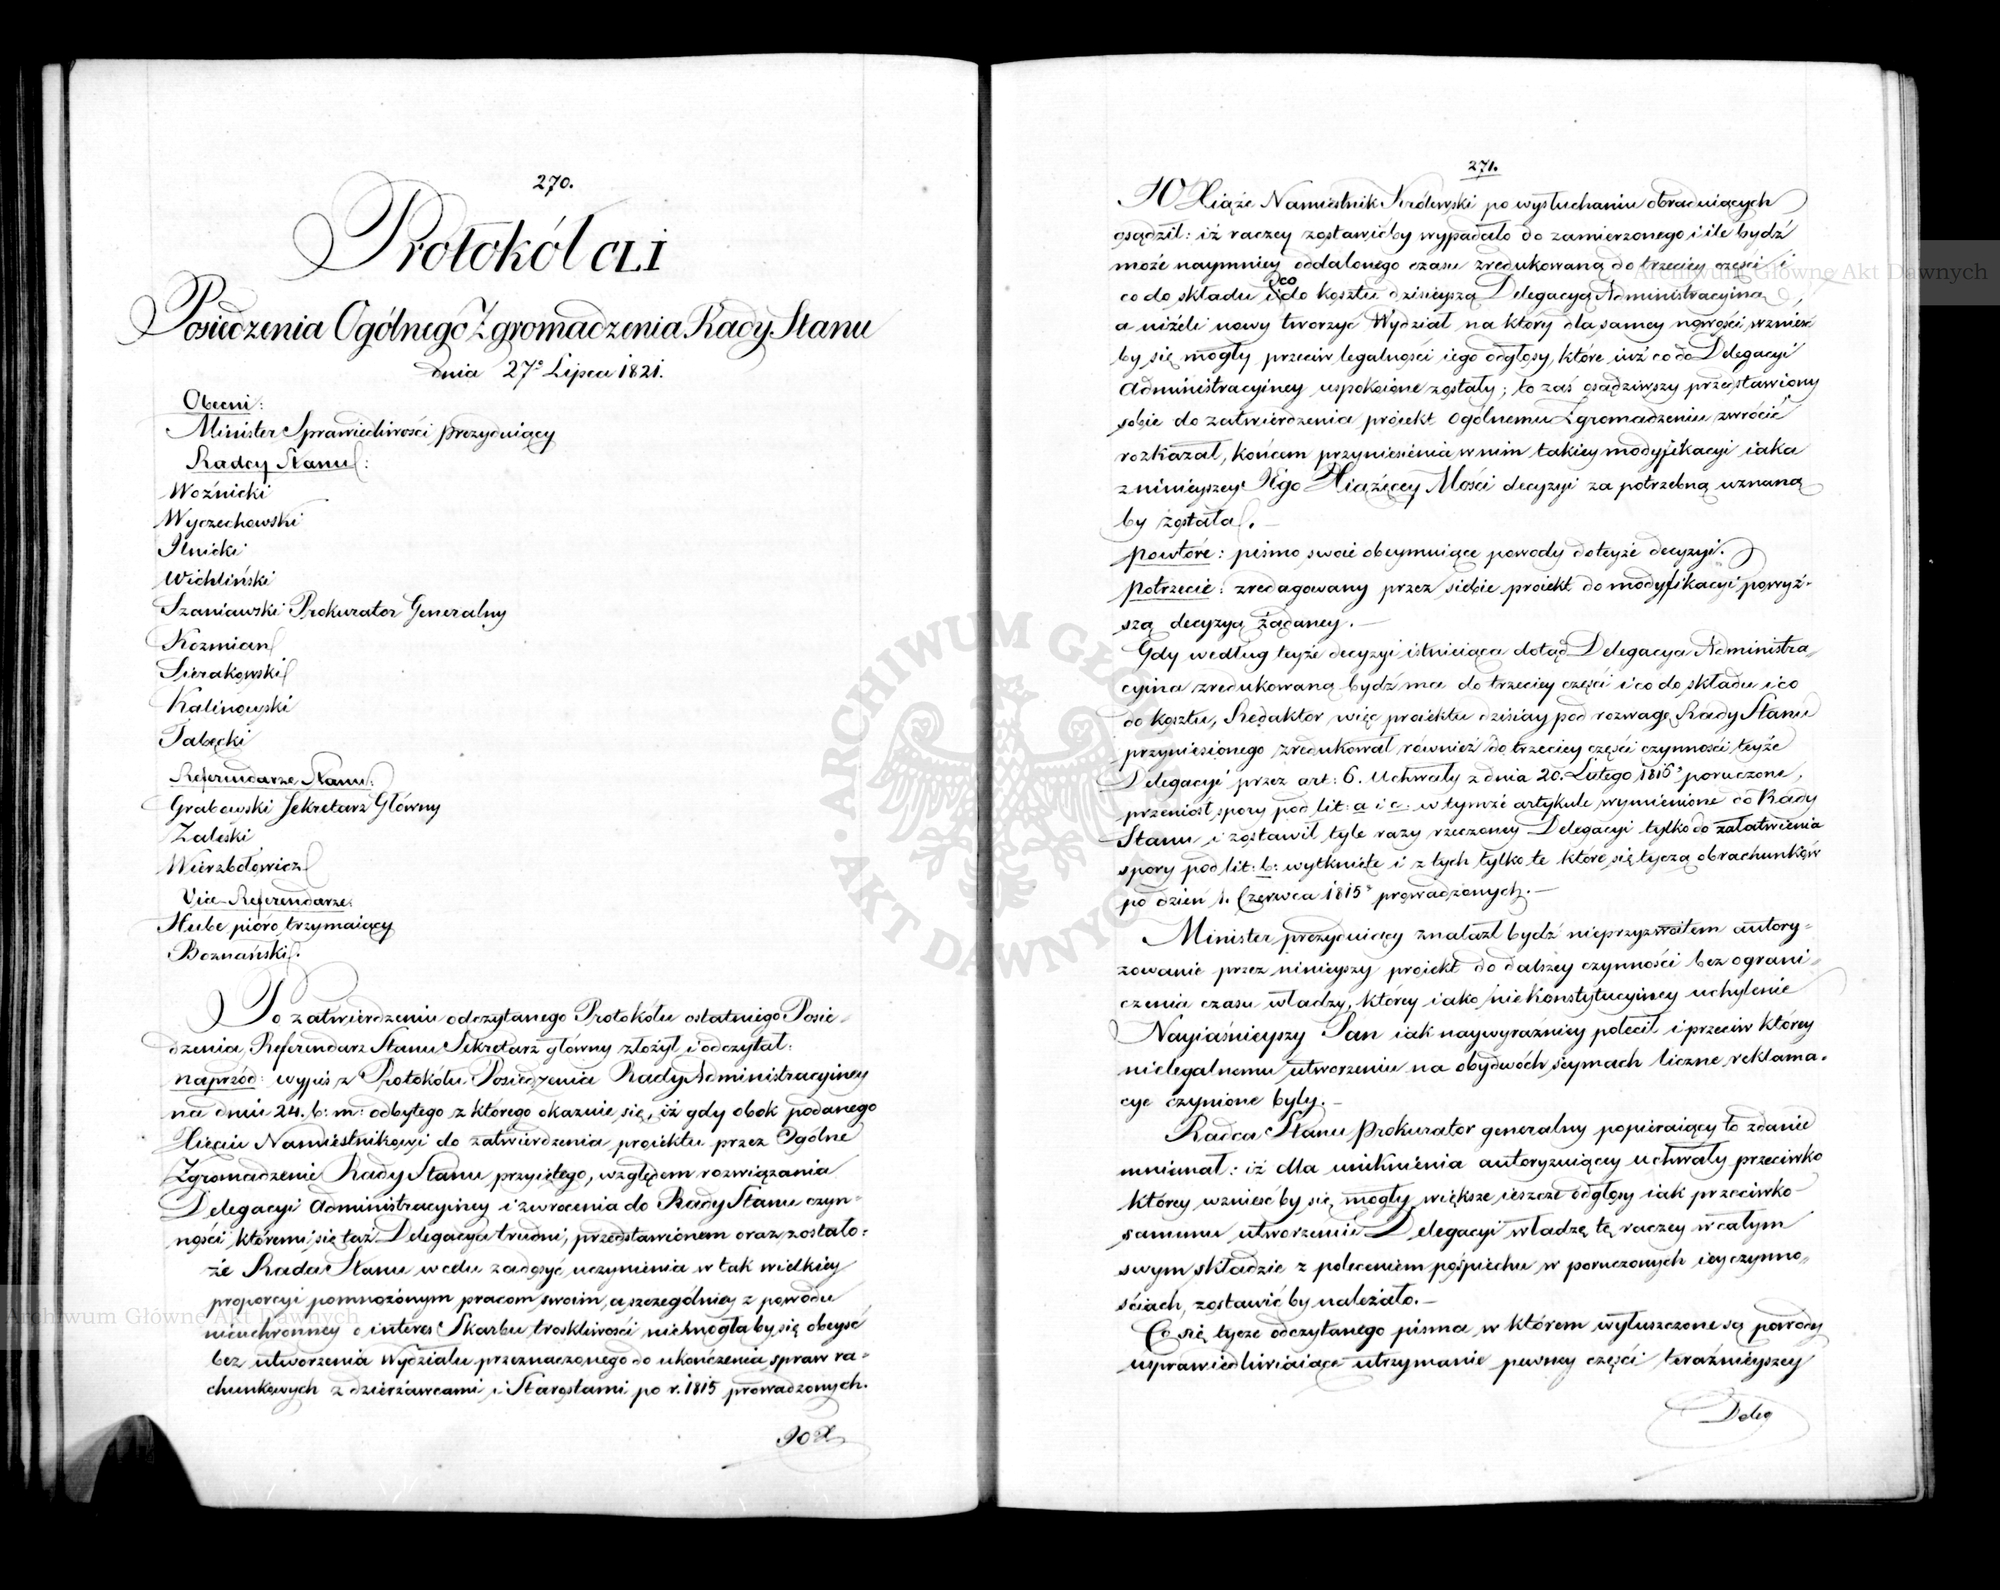 270.
Protokół CLI
Posiedzenia Ogólnego Zgromadzenia Rady Stanu
dnia 27° Lipca 1821.
Obecni:
Minister Sprawiedliwości prezyduiący
Radcy Stanu:
Woźnicki
Wyczechowski
Ilnicki
Wichliński
Szaniawski Prokurator Generalny
Kozmian
Sierakowski
Kalinowski
Tabęcki
Referendarze Stanu:
Grabowski Sekretarz Główny
Zaleski
Wierzbołowicz
Vice-Referendarze:
Hube pióro trzymaiący
Boznański.
Po zatwierdzeniu odczytanego Protokółu ostatniego Posie-
dzenia, Referendarz Stanu Sekretarz główny złożył i odczytał:
naprzód: wypis z Protokółu Posiedzenia Rady Administracyiney
na dniu 24. b: m: odbytego z którego okazuie się, iż gdy obok podanego
Xięciu Namiestnikowi do zatwierdzenia proiektu przez Ogólne
Zgromadzenie Rady Stanu przyiętego, względem rozwiązania
Delegacyi Administracyiney i zwrocenia do Rady Stanu czyn-
ności któremi się taż Delegacya trudni, przedstawionem oraz zostało:
że Rada Stanu w celu zadosyć uczynienia w tak wielkiey
proporcyi pomnożonym pracom swoim, a szczególniey z powodu
nieuchronney o interes Skarbu troskliwości niemogłaby się obeyść
bez utworzenia Wydziału przeznaczonego do ukończenia spraw ra-
chunkowych z dzierżawcami i Starostami po r. 1815 prowadzonych.
JOX
271.
JO Xiąże Namiestnik Królewski po wysłuchaniu obraduiących
osądził: iż raczey zostawićby wypadało do zamierzonego i ile bydź
może naymniey oddalonego czasu zredukowaną do trzeciey części i
co do składu i co do kosztu dzisieyszą Delegacyą Administracyiną,
a niżeli nowy tworzyć Wydział na który dla samey nowości wznieść
by się mogły przeciw legalności iego odgłosy, które iuż co do Delegacyi
Administracyiney uspokoione zostały; to zaś osądziwszy przedstawiony
sobie do zatwierdzenia proiekt Ogólnemu Zgromadzeniu zwrócić
rozkazał, końcem przyniesienia w nim takiey modyfikacyi iaka
z ninieyszey Jego Xiążęcey Mości decyzyi za potrzebną uznaną
by została. —
powtóre: pismo swoie obeymuiące powody do teyże decyzyi.
potrzecie: zredagowany przez siebie proiekt do modyfikacyi powyż-
szą decyzyą żądaney. —
Gdy według teyże decyzyi istnieiąca dotąd Delegacya Administra-
cyina zredukowaną bydź ma do trzeciey części i co do składu i co
do kosztu, Redaktor więc proiektu dzisiay pod rozwagę Rady Stanu
przyniesionego zredukował również do trzeciey części czynności teyże
Delegacyi przez art: 6. Uchwały z dnia 20. Lutego 1816° poruczone,
przeniosł spory pod lit: a i c: w tymże artykule wymienione do Rady
Stanu i zostawił tyle razy rzeczoney Delegacyi tylko do załatwienia
spory pod lit: b: wytknięte i z tych tylko te które się tyczą obrachunków
po dzień 1. Czerwca 1815° prowadzonych. —
Minister prezyduiący znalazł bydź nieprzyzwoitem autory-
zowanie przez ninieyszy proiekt do dalszey czynności bez ograni-
czenia czasu władzy, którey iako niekonstytucyiney uchylenie
Nayiaśnieyszy Pan iak naywyraźniey polecił i przeciw którey
nielegalnemu utworzeniu na obydwóch seymach liczne reklama-
cye czynione były. —
Radca Stanu Prokurator generalny popieraiący to zdanie
mniemał: iż dla uniknienia autoryzuiącey uchwały przeciwko
którey wznieść by się mogły większe ieszcze odgłosy iak przeciwko
samemu utworzeniu Delegacyi władzę tę raczey w całym
swym składzie z poleceniem pośpiechu w poruczonych iey czynno-
ściach, zostawić by należało. —
Co się tycze odczytanego pisma w którem wyłuszczone są powody
usprawiedliwiaiące utrzymanie pewney części teraźnieyszey
Deleg